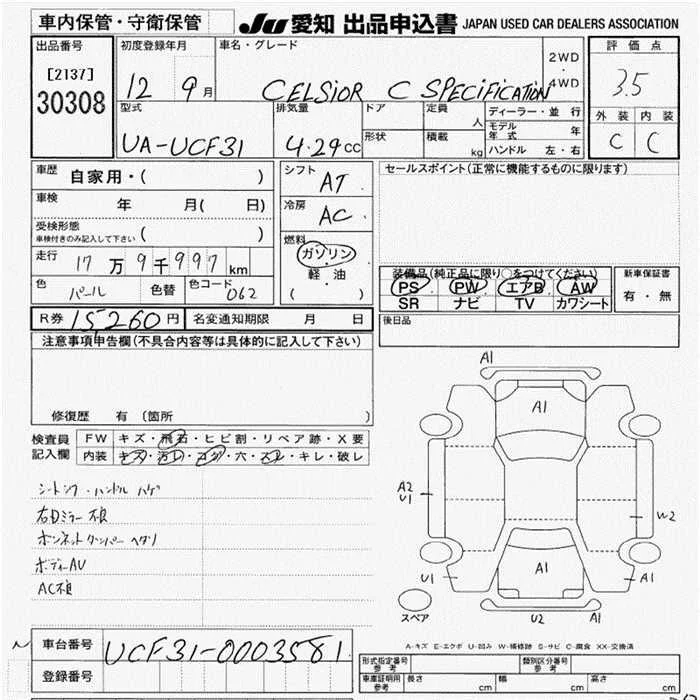 車内保管・守衛保管
JU 愛知 出品申込書 JAPAN USED CAR DEALERS ASSOCIATION
出品番号
[2137]
30308
初度登録年月
12 9月
車名・グレード
CELSIOR C SPECIFICATION
2WD
・
4WD
評価点
3.5
外装 内装
C C
型式
UA-UCF31
排気量
4.29cc
ドア
形状
定員 人
積載 kg
ディーラー・並行
モデル年式 年
ハンドル 左・右
車歴 自家用・( )
車検 年 月( 日)
受検形態
車検付きのみ記入して下さい ( )
走行 17万9千997km
色 パール 色替 色コード 062
シフト AT
冷房 AC
燃料
ガソリン
軽・油
( )
セールスポイント(正常に機能するものに限ります)
装備品(純正品に限り○をつけてください)
PS PW エアB AW
SR ナビ TV カワシート
新車保証書
有・無
後日品
R券 15,260円 名変通知期限 月 日
注意事項申告欄(不具合内容等は具体的に記入して下さい)
修復歴 有 〔箇所
検査員
記入欄
FW キズ・飛石・ヒビ割・リペア跡・X要
内装 キズ・汚レ・コゲ・穴・スレ・キレ・破レ
シートシワ・ハンドル ハゲ
右Dミラー不良
ボンネットダンパー ヘタリ
ボディーAU
AC不良
A1
A1
A2
U1
W2
U1
A1
A1
スペア
U2 A1
A-キズ E-エクボ U-凹み W-補修跡 S-サビ C-腐食 XX-交換済
車台番号 UCF31-0003581
登録番号
形式指定番号
参考
類別区分番号
参考
車庫証明用
参考
長さ cm 幅 cm 高さ cm